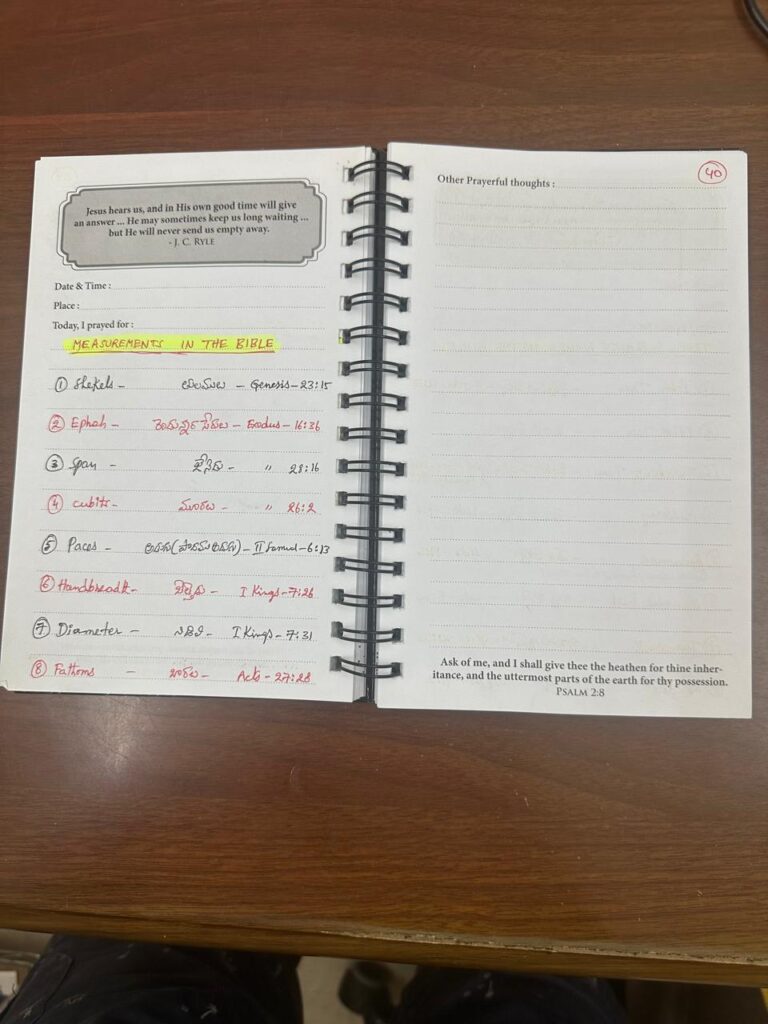 Jesus hears us, and in His own good time will give
an answer ... He may sometimes keep us long waiting ...
but He will never send us empty away.
- J. C. RYLE
Date & Time :
Place :
Today, I prayed for :
MEASUREMENTS IN THE BIBLE
① Shekels - తులములు - Genesis - 23:15
② Ephah - - Exodus - 16:36
③ Span - జేనెడు - " 28:16
④ Cubits - మూరలు - " 26:2
⑤ Paces - అడుగు - II Samuel - 6:13
⑥ Handbreadth - బెత్తెడు - I Kings - 7:26
⑦ Diameter - - I Kings - 7:31
⑧ Fathoms - బారలు - Acts - 27:28
40
Other Prayerful thoughts :
Ask of me, and I shall give thee the heathen for thine inher-
itance, and the uttermost parts of the earth for thy possession.
PSALM 2:8